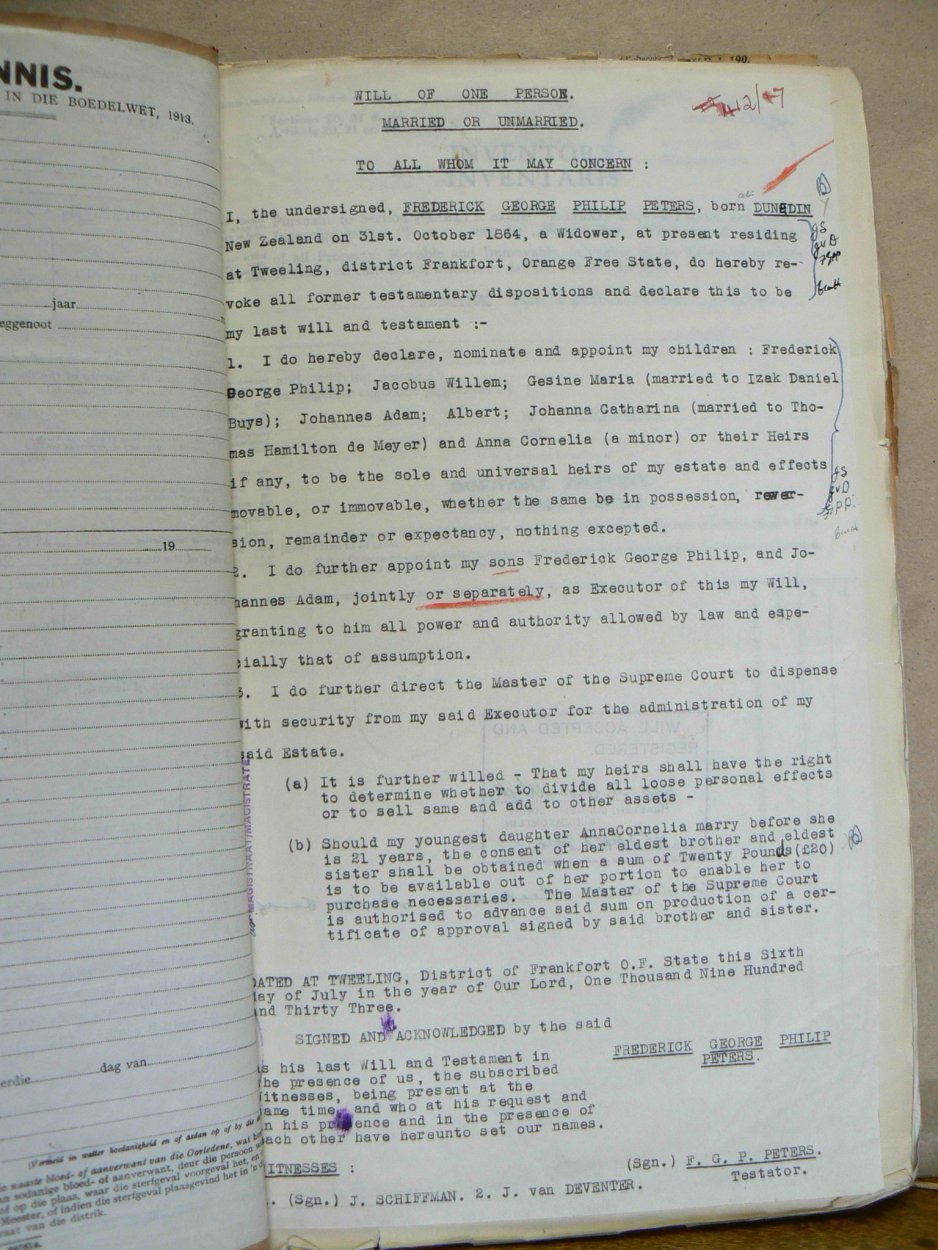 NNIS.
IN DIE BOEDELWET, 1913.
jaar
eggenoot
19
dag van
erdie
(Vermeld in watter hoedanigheid en of aedan op of by die
ie naaste bloed- of aanverwant van die Oorledene, wat b
an sodanige bloed- of aanverwant, deur die persoon
of op die plaas, waar die sterfgeval voorgeval het, en
Meester, of indien die sterfgeval plaasgevind het in 'n d
raat van die distrik.
MAGISTRAAT/MAGISTRATE
412/17
WILL OF ONE PERSOE.
MARRIED OR UNMARRIED.
TO ALL WHOM IT MAY CONCERN :
I, the undersigned, FREDERICK GEORGE PHILIP PETERS, born at DUNEDIN
New Zealand on 31st. October 1864, a Widower, at present residing
at Tweeling, district Frankfort, Orange Free State, do hereby re-
voke all former testamentary dispositions and declare this to be
my last will and testament :-
1. I do hereby declare, nominate and appoint my children : Frederick
George Philip; Jacobus Willem; Gesine Maria (married to Izak Daniel
Buys); Johannes Adam; Albert; Johanna Catharina (married to Tho-
mas Hamilton de Meyer) and Anna Cornelia (a minor) or their Heirs
if any, to be the sole and universal heirs of my estate and effects
movable, or immovable, whether the same be in possession, rever-
sion, remainder or expectancy, nothing excepted.
2. I do further appoint my sons Frederick George Philip, and Jo-
hannes Adam, jointly or separately, as Executor of this my Will,
granting to him all power and authority allowed by law and espe-
cially that of assumption.
3. I do further direct the Master of the Supreme Court to dispense
with security from my said Executor for the administration of my
said Estate.
(a) It is further willed - That my heirs shall have the right
to determine whether to divide all loose personal effects
or to sell same and add to other assets -
(b) Should my youngest daughter AnnaCornelia marry before she
is 21 years, the consent of her eldest brother and eldest
sister shall be obtained when a sum of Twenty Pounds (£20)
is to be available out of her portion to enable her to
purchase necessaries. The Master of the Supreme Court
is authorised to advance said sum on production of a cer-
tificate of approval signed by said brother and sister.
DATED AT TWEELING, District of Frankfort O.F. State this Sixth
day of July in the year of Our Lord, One Thousand Nine Hundred
and Thirty Three.
SIGNED AND ACKNOWLEDGED by the said
FREDERICK GEORGE PHILIP
PETERS.
as his last Will and Testament in
the presence of us, the subscribed
Witnesses, being present at the
same time, and who at his request and
in his presence and in the presence of
each other have hereunto set our names.
WITNESSES :
(Sgn.) F. G. P. PETERS.
Testator.
1. (Sgn.) J. SCHIFFMAN. 2. J. van DEVENTER.